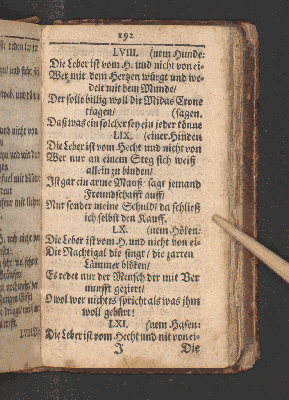 192
LVIII. (nem Hunde:
Die Leber ist vom H. und nicht von ei-
Wer mit dem Hertzen würgt und we-
delt mit dem Munde/
Der solle billig woll die Midas Crone
tragen/ (sagen.
Daß was ein solcher sey ein jeder könne
LIX. (einer Hinden
Die Leber ist vom Hecht und nicht von
Wer nur an einem Steg sich weiß
allein zu binden/
Ist gar ein arme Mauß: sagt jemand
Freundschafft auff/
Nur sonder meine Schuld/ da schließ
ich selbst den Kauff.
LX. (nem Hölen:
Die Leber ist vom H. und nicht von ei-
Die Nachtigal die singt/ die zarten
Lämmer blöken/
Es redet nur der Mensch der mit Ver
nunfft geziert/
O wol wer nichtes spricht als was ihm
woll gebürt!
LXI. (nem Hasen:
Die Leber ist vom Hecht und nit von ei-
J Die